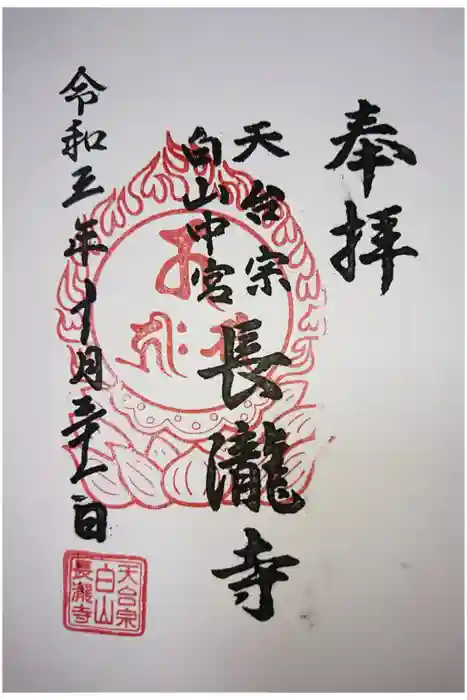 奉拝
天台宗
白山中宮
長瀧寺
令和五年十月 一日
天台宗
白山
長瀧寺